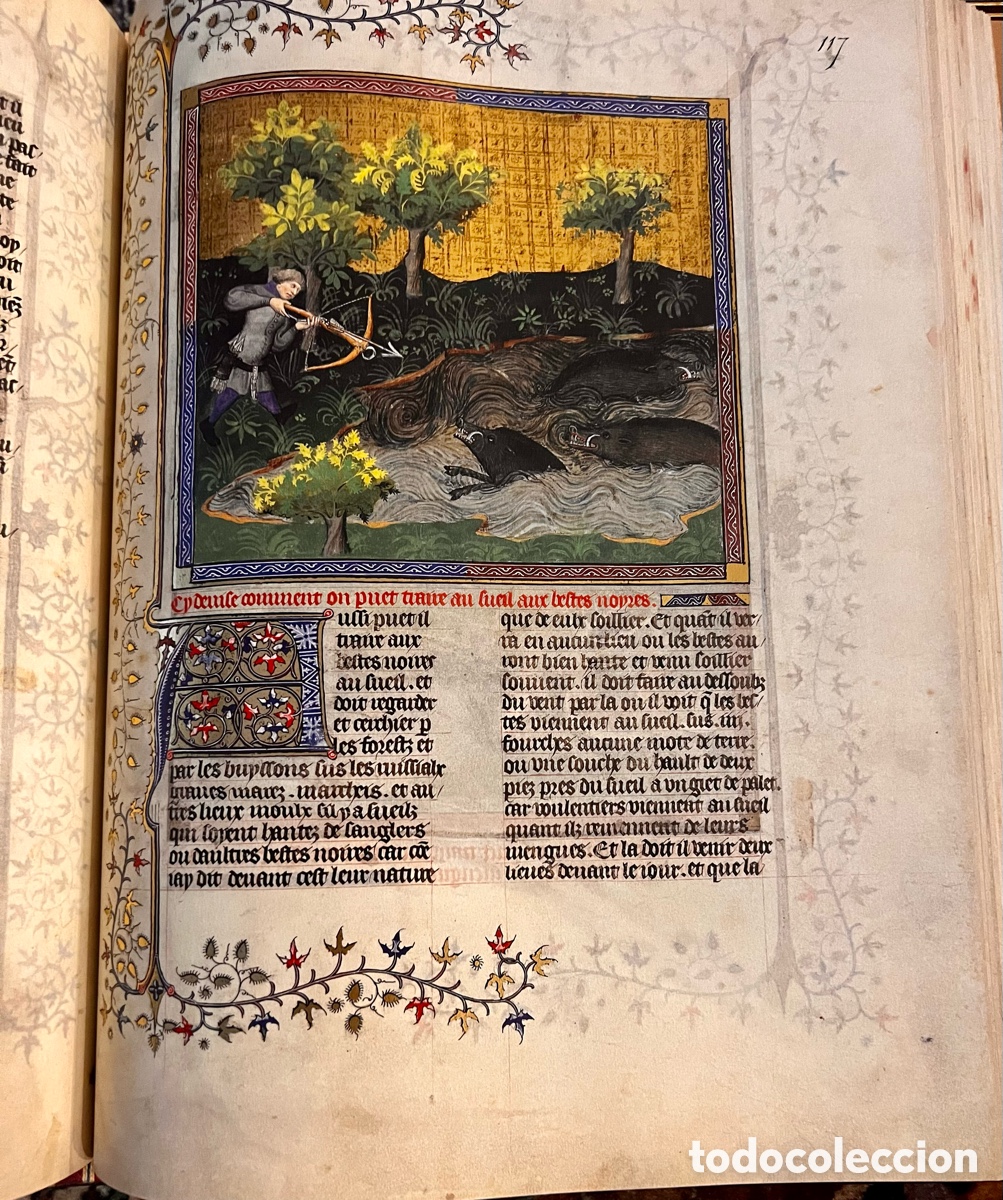 117
Cy deuise comment on puet traire au sueil aux bestes noyres.
Aussi puet il
traire aux
bestes noires
au sueil. et
doit regarder
et cerchier p
les forestz et
par les buyssons sus les
marez. et au
tres lieux moulx sil y a sueilz
qui soyent hantez de sanglers
ou daultres bestes noires/ car cõe
iay dit deuant cest leur nature
que de eulx soillier. Et quãt il ver/
ra en aucun lieu ou les bestes au/
ront bien hante et venu soillier
souuent. il doit faire au dessoubz
du vent par la ou il voit q̃ les bes/
tes viennent au sueil. sus .iii.
fourches aucune mote de terre.
ou vne souche du hault de deux
piez pres du sueil a vn giet de palet.
car voulentiers viennent au sueil
quant ilz reuiennent de leurs
mengues. Et la doit il venir deux
lieues deuant le iour. et que la/
todocoleccion